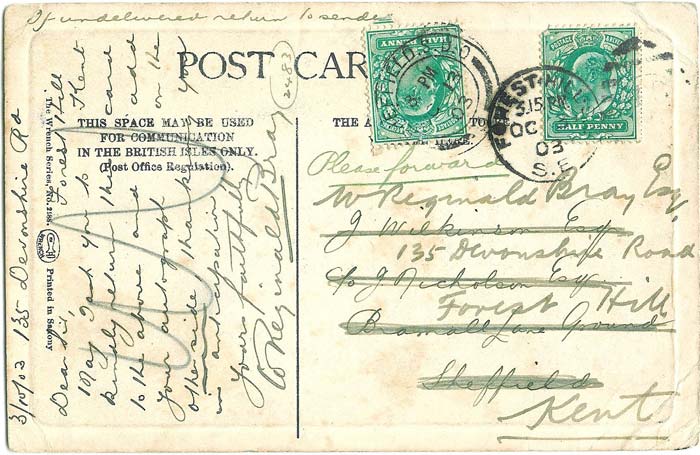 If undelivered return to sender
POST CAR
2483
THIS SPACE MAY BE USED
FOR COMMUNICATION
IN THE BRITISH ISLES ONLY.
(Post Office Regulation).
THE A
TO
HERE.
HALF PENNY
SHEFFIELD
8 PM
03
POSTAGE
HALF PENNY
FOREST-HILL
3.15 PM
OC
03
S.E.
The Wrench Series, No.
Printed in Saxony
3/10/03 135 Devonshire Rd
Forest Hill
Kent
Dear Sir
May I ask you to
kindly return this card
to the above and add
your autograph on the
other side thanking you
in anticipation
Yours faithfully
W Reginald Bray
Please forward
W Reginald Bray Esq
J Wilkinson Esq
135 Devonshire Road
c/o J Nicholson Esq
Forest Hill
Bramall Lane Ground
Sheffield
Kent